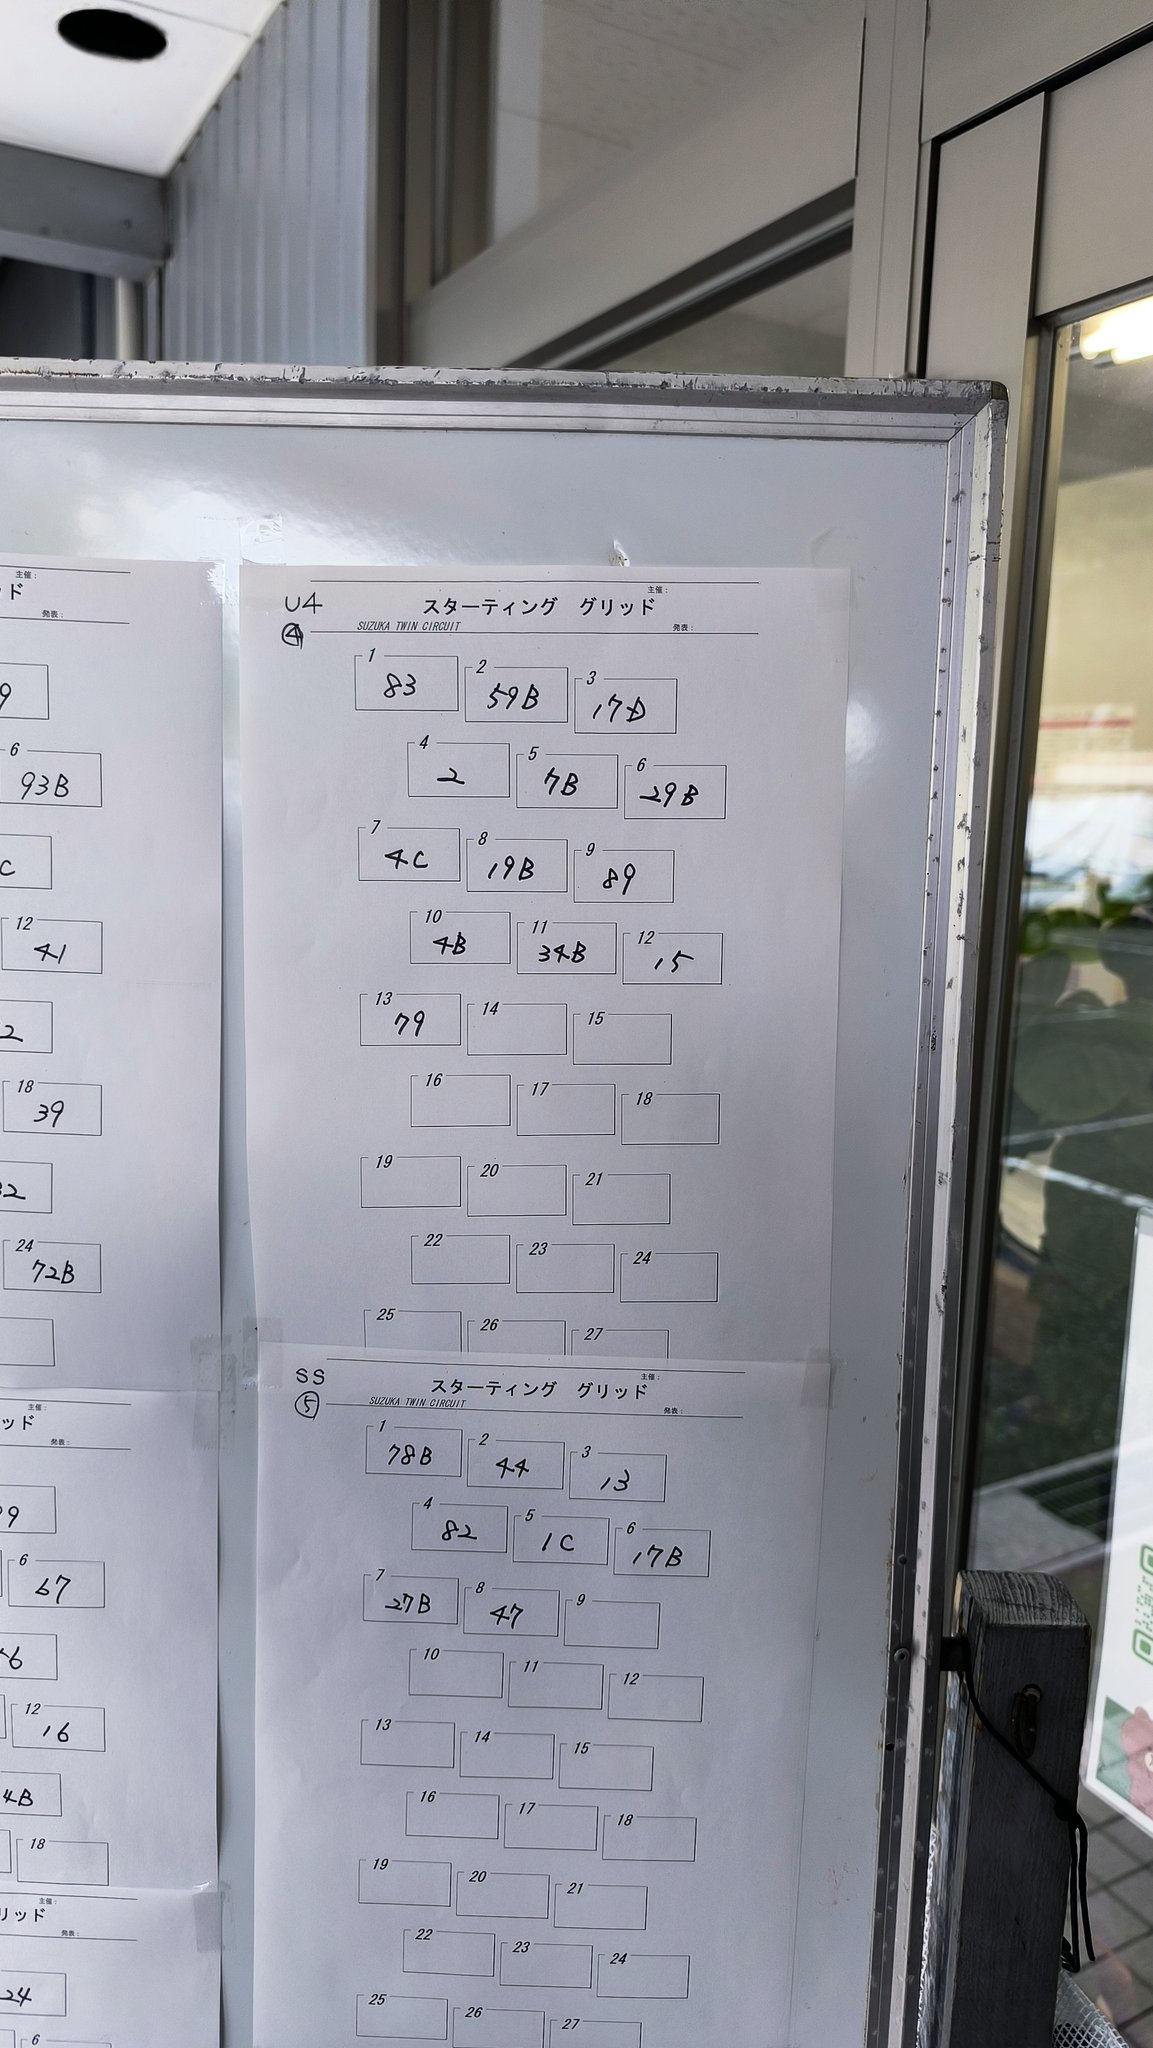 主催：
ッド
発表：
9
6
93B
C
12
41
2
18
39
32
24
72B
主催：
ッド
発表：
9
6
67
6
12
16
4B
18
主催：
リッド
発表：
24
6
主催：
U4
スターティング グリッド
④
SUZUKA TWIN CIRCUIT
発表：
1 2 3
83 59B 17D
4 5 6
2 7B 29B
7 8 9
4C 19B 89
10 11 12
4B 34B 15
13 14 15
79
16 17 18
19 20 21
22 23 24
25 26 27
主催：
SS
スターティング グリッド
⑤
SUZUKA TWIN CIRCUIT
発表：
1 2 3
78B 44 13
4 5 6
82 1C 17B
7 8 9
27B 47
10 11 12
13 14 15
16 17 18
19 20 21
22 23 24
25 26 27